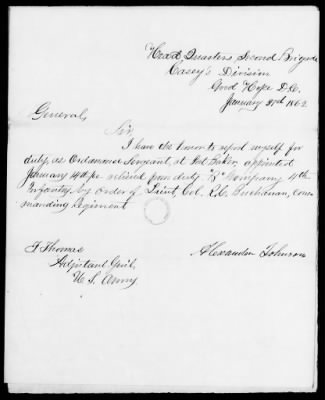 Head Quarters Second Brigade
Casey's Division
Good Hope D.C.
January 2nd 1862
General,
Sir,
I have the honor to report myself for
duty, as Ordnance Sergeant at Fort Baker, appointed
January relieved from duty "B" Company 4th
Infantry, by order of Lieut, Col. R.C. Buchanan, com-
manding Regiment
Thomas
Adjutant Genl.
U. S. Army
Alexander Johnson